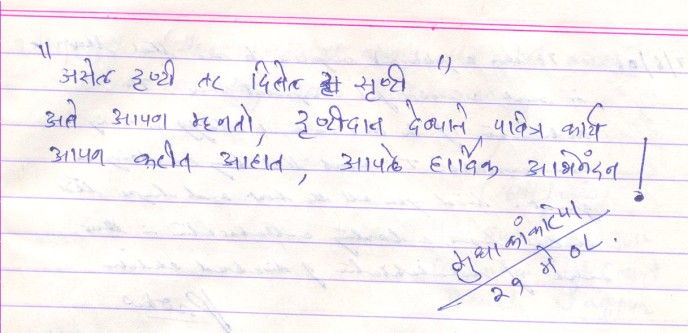 " असेल दृष्टी तर दिसेल सृष्टी "
असे आपण म्हणतो, दृष्टीदान देण्याचे पवित्र कार्य
आपण करीत आहात, आपले हार्दिक अभिनंदन !
२१ मे ०८.